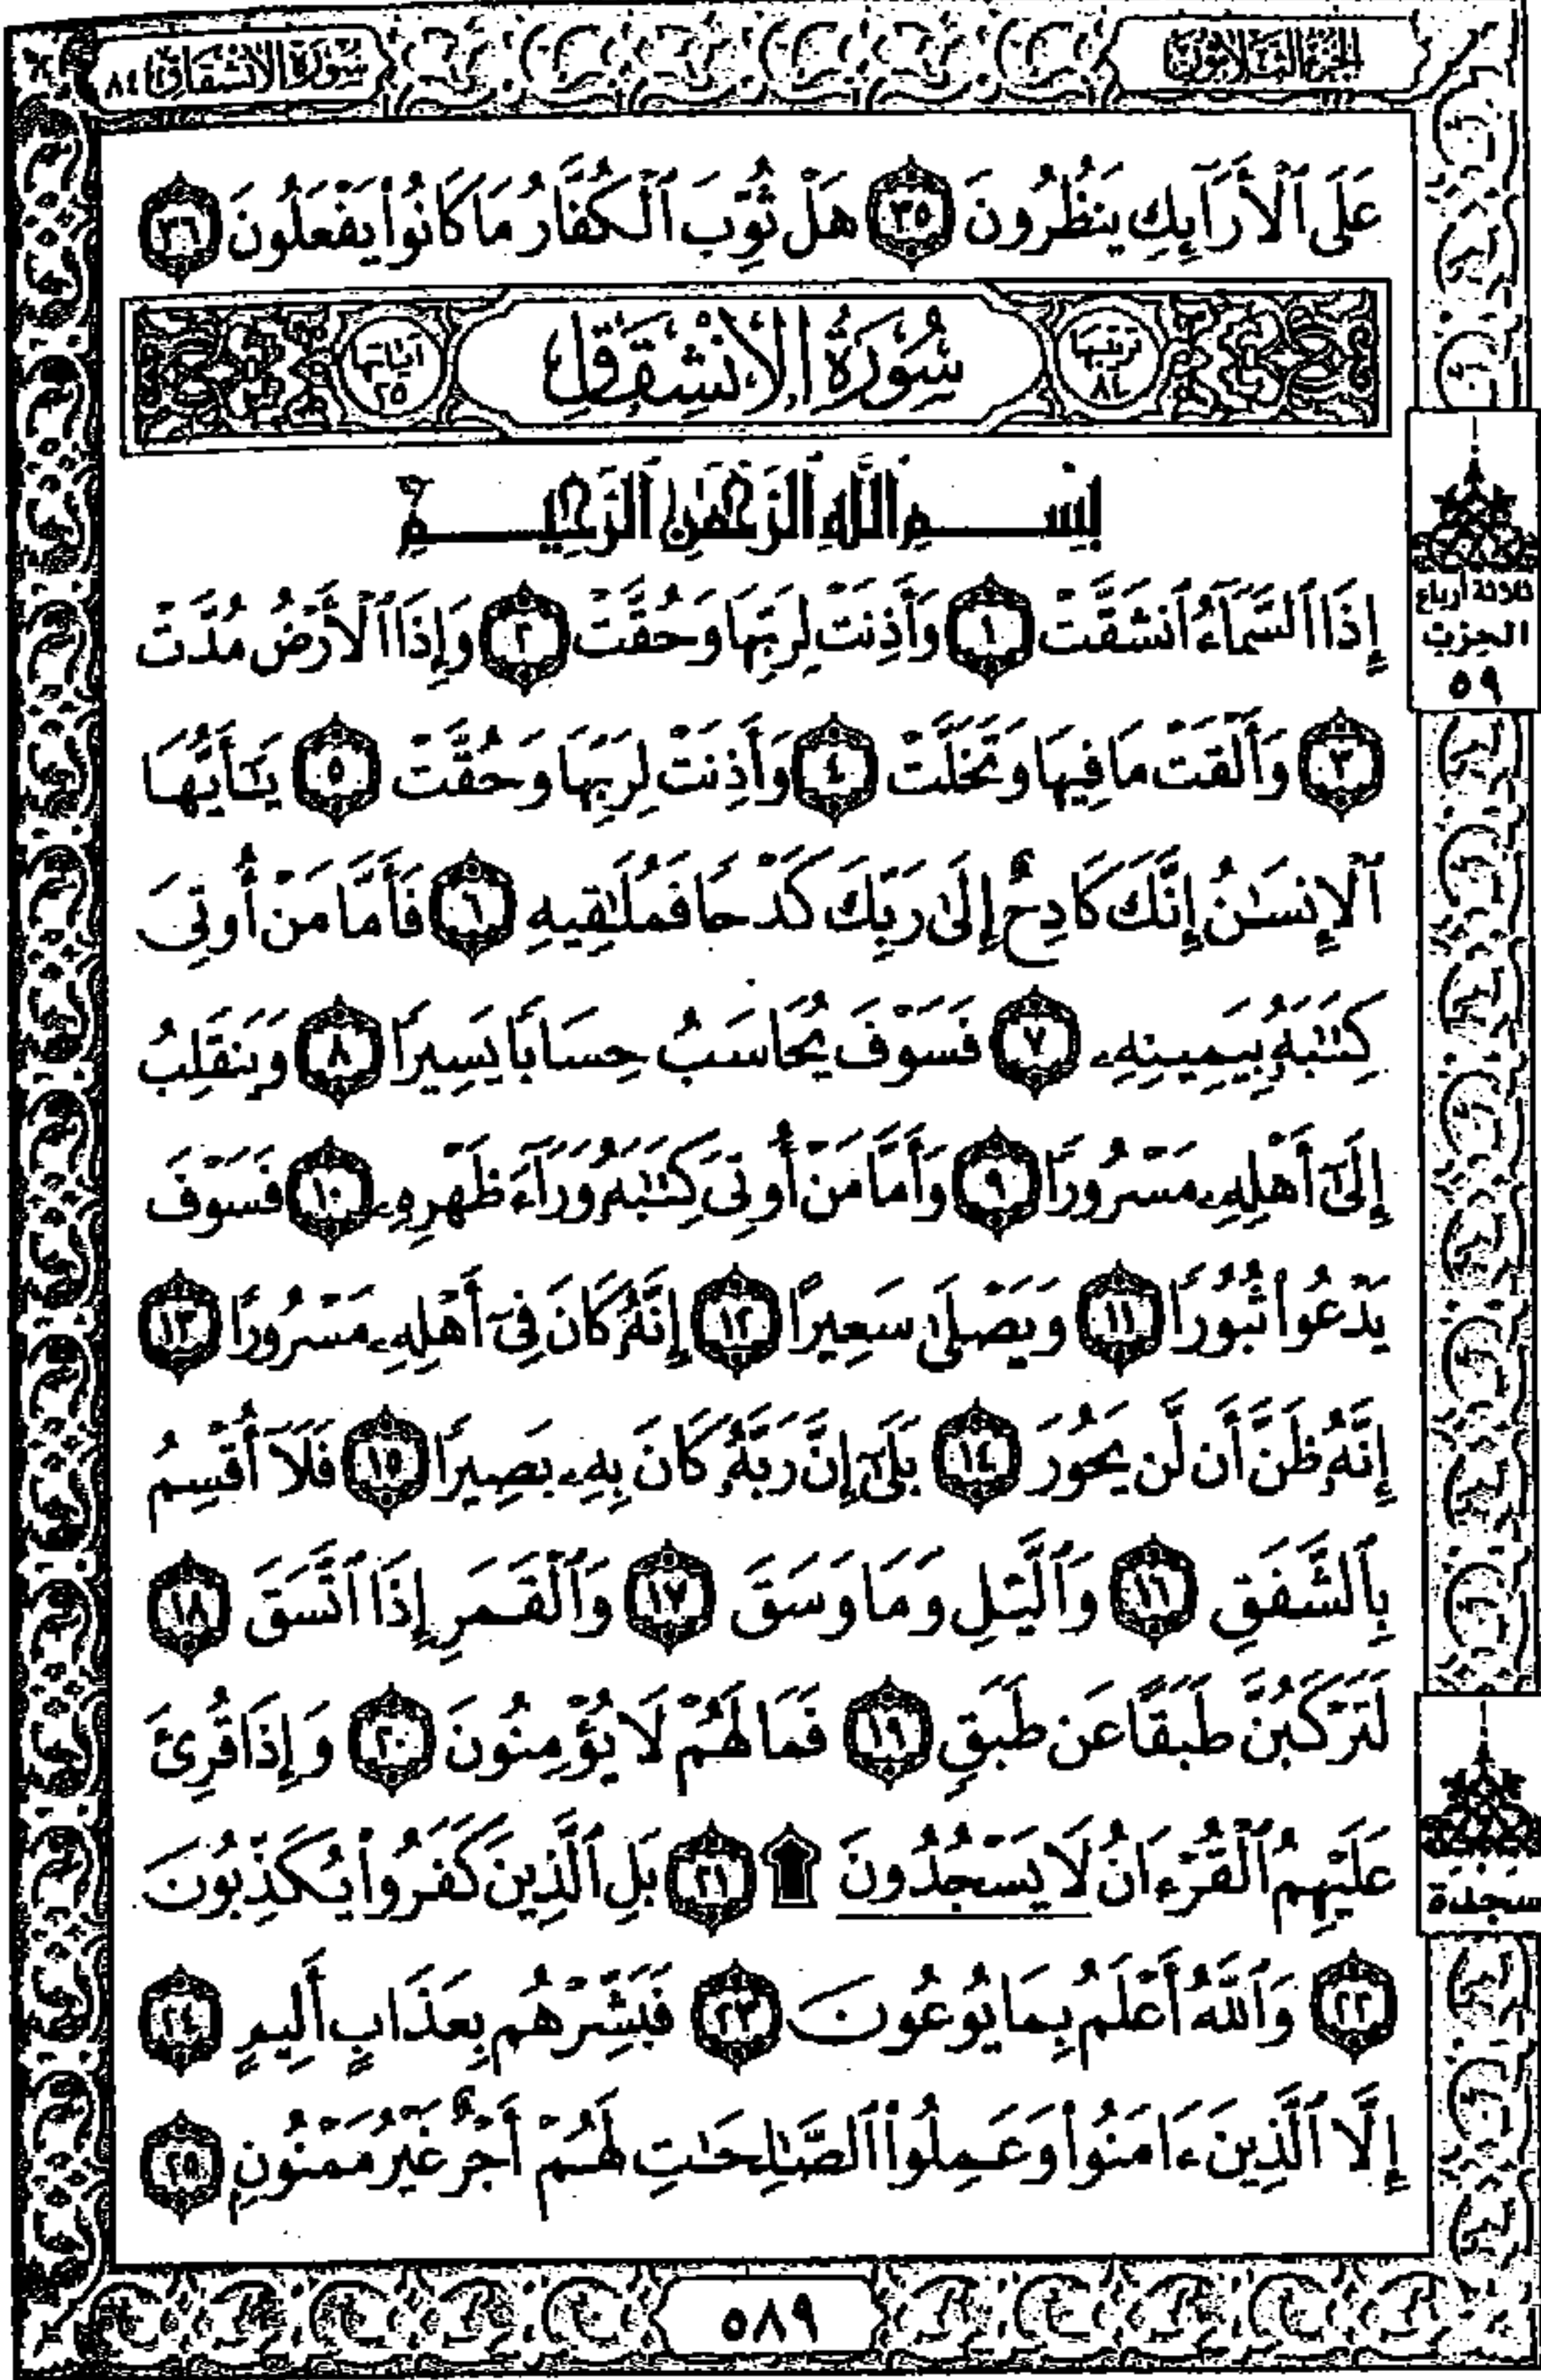 الجزء الثلاثون
سورة الانشقاق ٨٤
عَلَى ٱلْأَرَآئِكِ يَنظُرُونَ ٣٥ هَلْ ثُوِّبَ ٱلْكُفَّارُ مَا كَانُوا۟ يَفْعَلُونَ ٣٦
ترتيبها ٨٤
سُورَةُ الِانْشِقَاقِ
آياتها ٢٥
بِسْمِ ٱللَّهِ ٱلرَّحْمَٰنِ ٱلرَّحِيمِ
إِذَا ٱلسَّمَآءُ ٱنشَقَّتْ ١ وَأَذِنَتْ لِرَبِّهَا وَحُقَّتْ ٢ وَإِذَا ٱلْأَرْضُ مُدَّتْ
ثلاثة أرباع
الحزب
٥٩
٣ وَأَلْقَتْ مَا فِيهَا وَتَخَلَّتْ ٤ وَأَذِنَتْ لِرَبِّهَا وَحُقَّتْ ٥ يَٰٓأَيُّهَا
ٱلْإِنسَٰنُ إِنَّكَ كَادِحٌ إِلَىٰ رَبِّكَ كَدْحًا فَمُلَٰقِيهِ ٦ فَأَمَّا مَنْ أُوتِىَ
كِتَٰبَهُۥ بِيَمِينِهِۦ ٧ فَسَوْفَ يُحَاسَبُ حِسَابًا يَسِيرًا ٨ وَيَنقَلِبُ
إِلَىٰٓ أَهْلِهِۦ مَسْرُورًا ٩ وَأَمَّا مَنْ أُوتِىَ كِتَٰبَهُۥ وَرَآءَ ظَهْرِهِۦ ١٠ فَسَوْفَ
يَدْعُوا۟ ثُبُورًا ١١ وَيَصْلَىٰ سَعِيرًا ١٢ إِنَّهُۥ كَانَ فِىٓ أَهْلِهِۦ مَسْرُورًا ١٣
إِنَّهُۥ ظَنَّ أَن لَّن يَحُورَ ١٤ بَلَىٰٓ إِنَّ رَبَّهُۥ كَانَ بِهِۦ بَصِيرًا ١٥ فَلَآ أُقْسِمُ
بِٱلشَّفَقِ ١٦ وَٱلَّيْلِ وَمَا وَسَقَ ١٧ وَٱلْقَمَرِ إِذَا ٱتَّسَقَ ١٨
لَتَرْكَبُنَّ طَبَقًا عَن طَبَقٍ ١٩ فَمَا لَهُمْ لَا يُؤْمِنُونَ ٢٠ وَإِذَا قُرِئَ
عَلَيْهِمُ ٱلْقُرْءَانُ لَا يَسْجُدُونَ ۩ ٢١ بَلِ ٱلَّذِينَ كَفَرُوا۟ يُكَذِّبُونَ
سجدة
٢٢ وَٱللَّهُ أَعْلَمُ بِمَا يُوعُونَ ٢٣ فَبَشِّرْهُم بِعَذَابٍ أَلِيمٍ ٢٤
إِلَّا ٱلَّذِينَ ءَامَنُوا۟ وَعَمِلُوا۟ ٱلصَّٰلِحَٰتِ لَهُمْ أَجْرٌ غَيْرُ مَمْنُونٍۭ ٢٥
٥٨٩